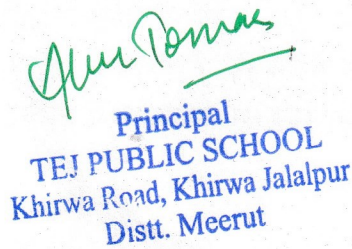 Principal
TEJ PUBLIC SCHOOL
Khirwa Road, Khirwa Jalalpur
Distt. Meerut